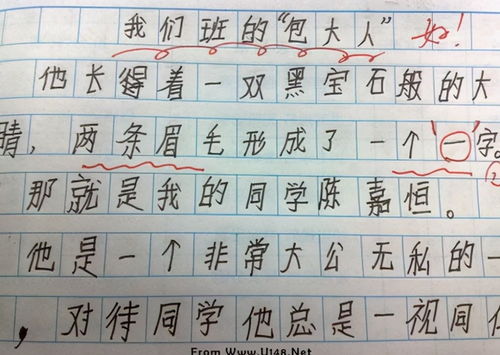 我们班的“包大人” 好!
他长得着一双黑宝石般的大
睛,两条眉毛形成了一个'一'字。
那就是我的同学陈嘉恒。
他是一个非常大公无私的一
,对待同学他总是一视同
From Www.U148.Net